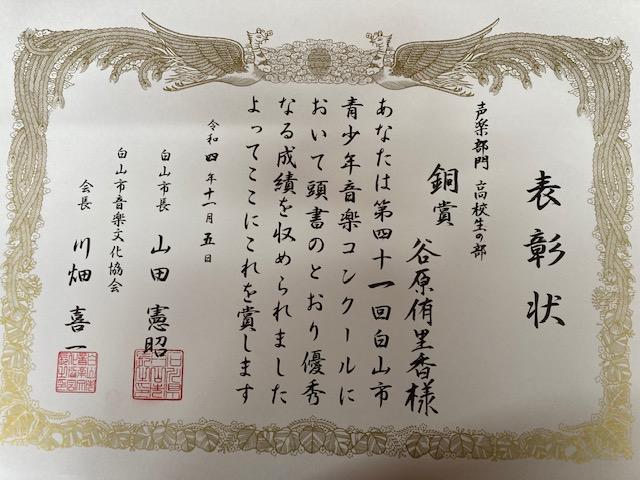 表彰状
声楽部門 高校生の部
銅賞 谷原侑里香様
あなたは第四十一回白山市
青少年音楽コンクールに
おいて頭書のとおり優秀
なる成績を収められました
よってここにこれを賞します
令和四年十一月五日
白山市長 山田憲昭
白山市音楽文化協会
会長 川畑喜一